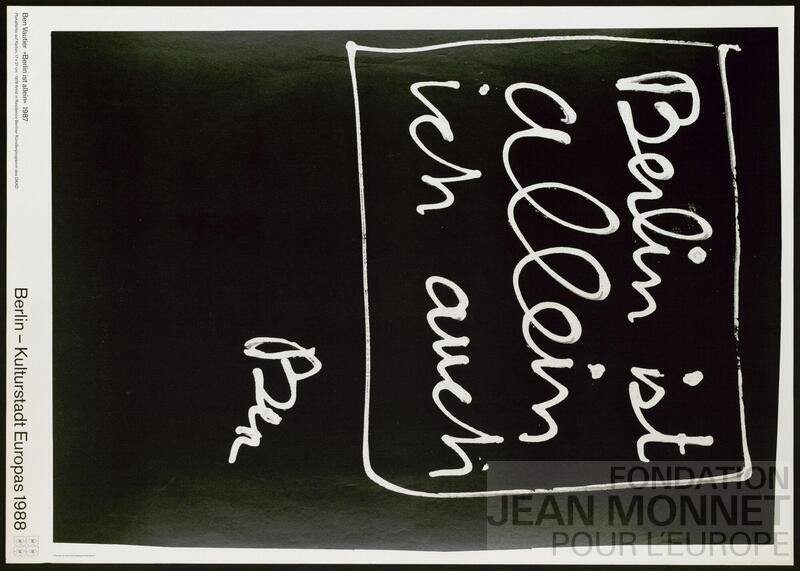 Berlin ist
allein
ich auch
Ben
Ben Vautier »Berlin ist allein« 1987
Berlin – Kulturstadt Europas 1988
FONDATION
JEAN MONNET
POUR L'EUROPE